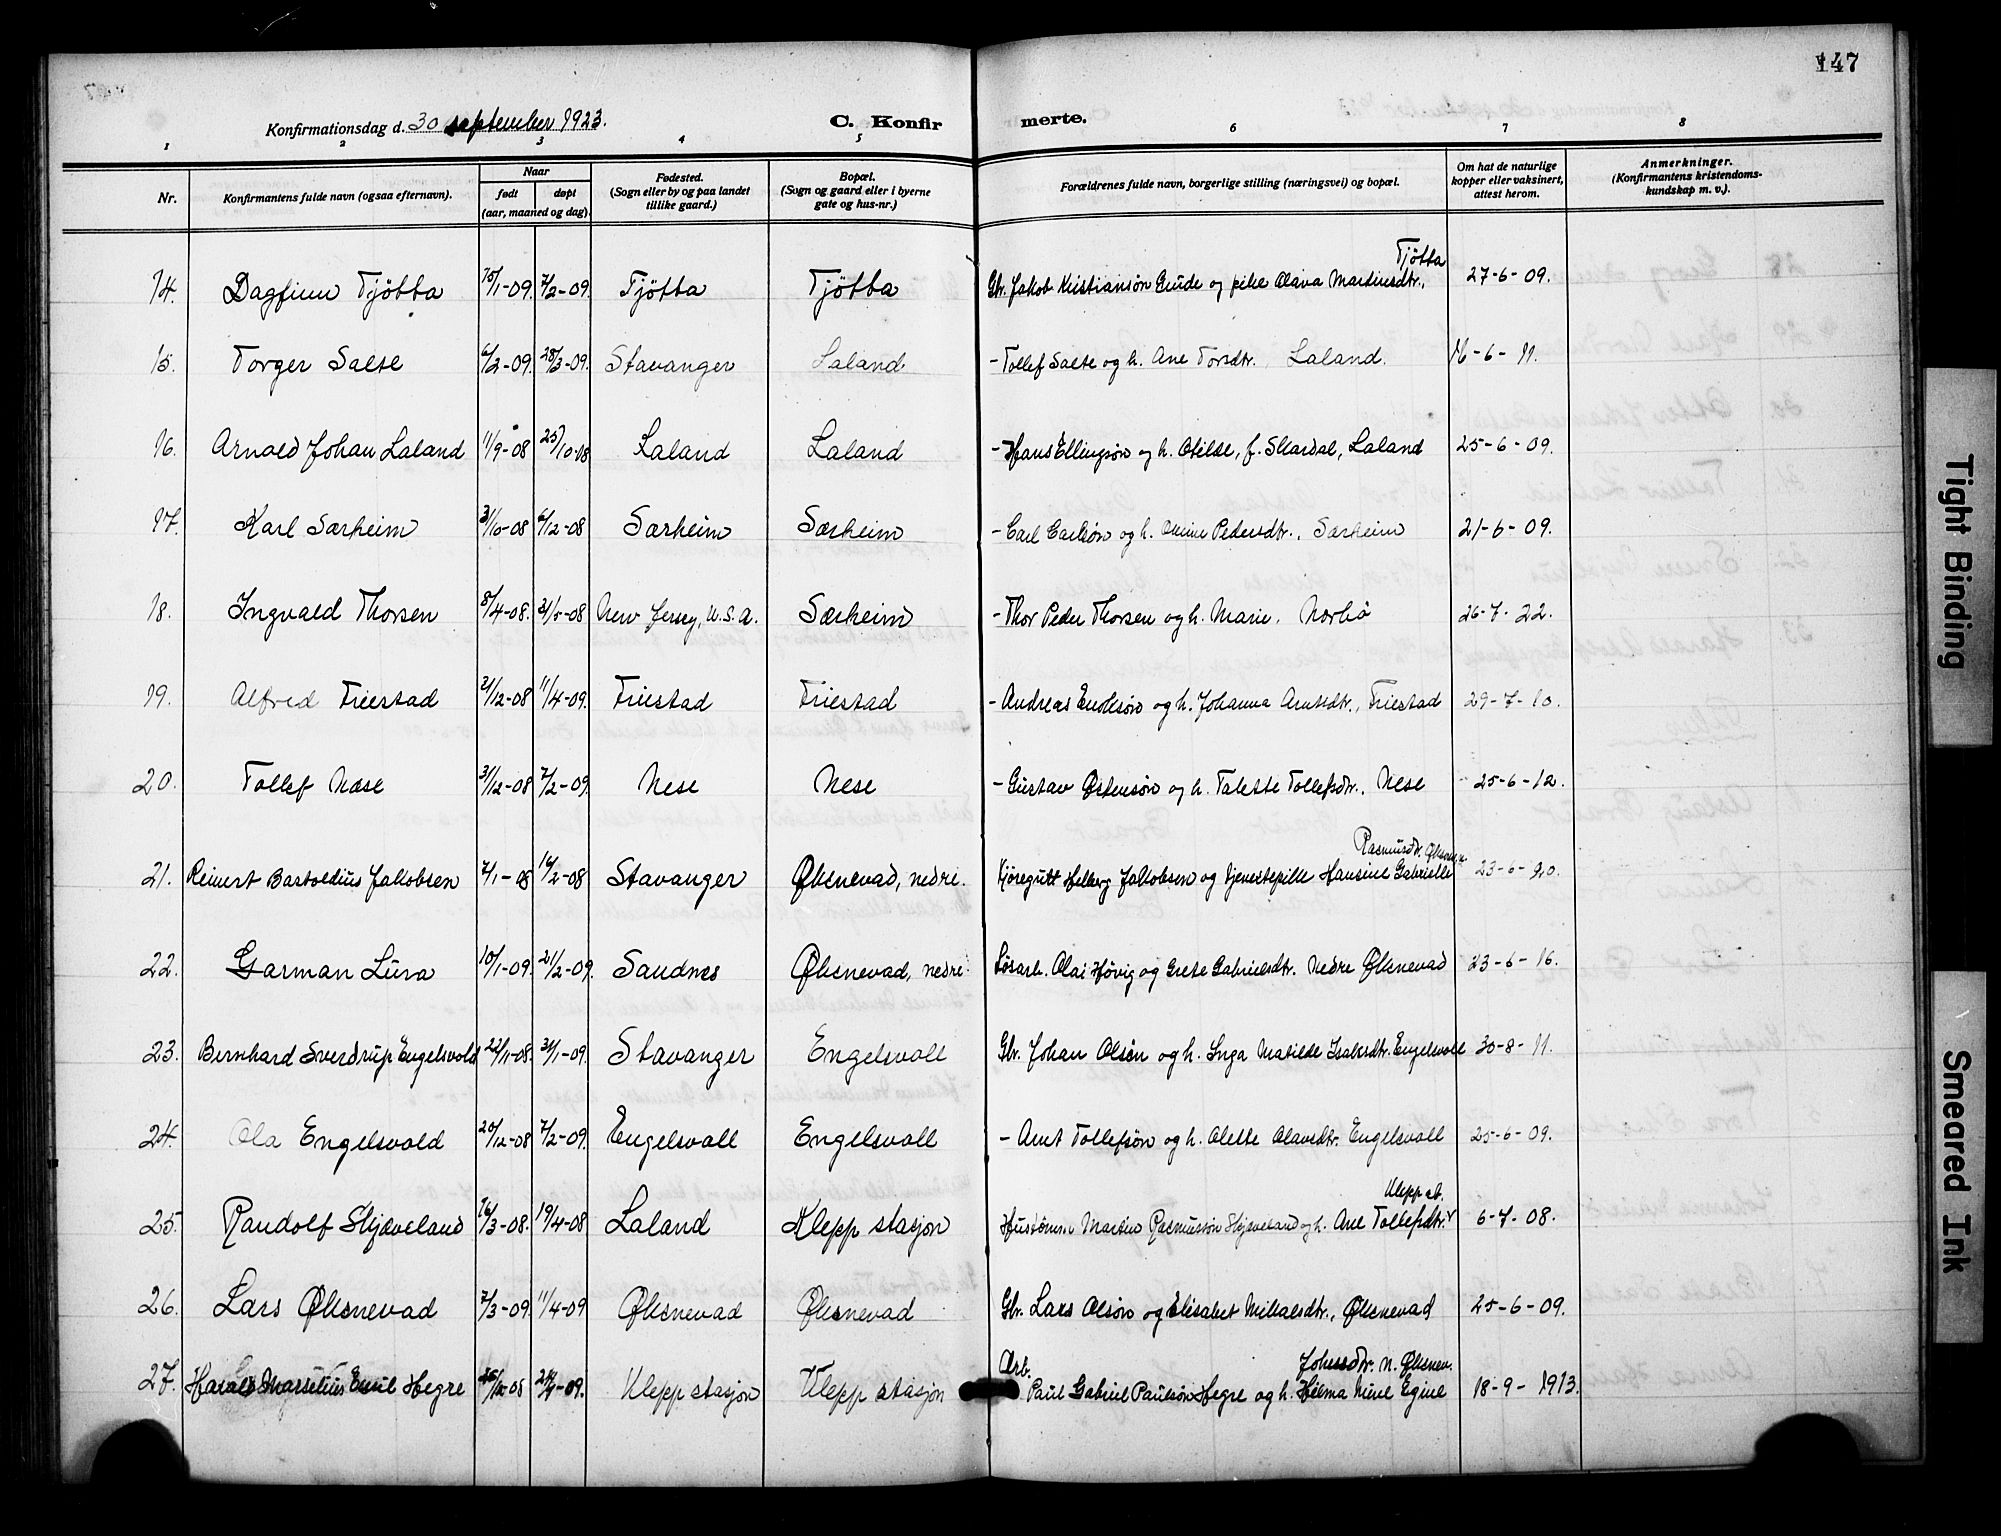 147
Konfirmationsdag d. 30 september 1923. C. Konfirmerte.
1 2 3 4 5 6 7 8
Nr. Konfirmantens fulde navn (ogsaa efternavn). Naar født døpt (aar, maaned og dag). Fødested. (Sogn eller by og paa landet tillike gaard.) Bopæl. (Sogn og gaard eller i byerne gate og hus-nr.) Forældrenes fulde navn, borgerlige stilling (næringsvei) og bopæl. Om hat de naturlige kopper eller vaksinert, attest herom. Anmerkninger. (Konfirmantens kristendomskundskap m. v.).
14. Dagfinn Tjøtta 15/1-09. 7/2-09. Tjøtta Tjøtta Gbr. Jakob Kristiansøn Gude og pike Olava Martinsdtr., Tjøtta 27-6-09.
15. Torger Salte 6/2-09. 28/3-09. Stavanger Laland - Tollef Salte og h. Ane Torsdtr. Laland. 16-6-11.
16. Arnold Johan Laland 11/9-08 25/10-08 Laland Laland - Hans Ellingsøn og h. Otilde, f. Skardal, Laland 25-6-09.
17. Karl Særheim 31/10-08 6/12-08 Særheim Særheim - Carl Carlsøn og h. Pedersdtr., Særheim 21-6-09.
18. Ingvald Thorsen 8/4-08. 31/5-08 New Jersey, U.S.A. Særheim - Thor Peder Thorsen og h. Marie, Nærbø 26-7-22.
19. Alfred Friestad 21/12-08 11/4-09. Friestad Friestad - Andreas Enoksøn og h. Johanna Arntsdtr., Friestad 29-7-10.
20. Tollef Næse 31/12-08 7/2-09. Nese Nese - Gustav Østensøn og h. Talette Tollefsdtr., Nese 25-6-12.
21. Reinert Bastoldius Jakobsen 7/1-08 16/2-08 Stavanger Øksnevad, nedre. Kjøregutt Helberg Jakobsen og tjenestepike Hansine Gabrielle Rasmusdtr. Øksnev. n. 23-6-20.
22. Garman Lura 10/1-09. 21/2-09. Sandnes Øksnevad, nedre. Løsarb. Olai Høvig og Grete Gabrielsdtr. Nedre Øksnevad 23-6-16.
23. Bernhard Sverdrup Engelsvold 22/11-08. 31/1-09. Stavanger Engelsvoll Gbr. Johan Olsen og h. Inga Matilde Isaksdtr. Engelsvoll 30-8-11.
24. Ola Engelsvold 20/12-08 7/2-09. Engelsvoll Engelsvoll - Arnt Tollefsøn og h. Olette Olavsdtr. Engelsvoll 25-6-09.
25. Randolf Skjæveland 16/3-08. 19/4-08 Laland Klepp stasjon Hustømm Martin Rasmussøn Skjæveland og h. Ane Tollefsdtr. Klepp st. 6-7-08.
26. Lars Øksnevad 7/3-09. 11/4-09 Øksnevad Øksnevad Gbr. Lars Olsøn og Elisabet Mikalsdtr., Øksnevad 25-6-09.
27. Harald Marselius Emil Hegre Klepp stasjon Klepp stasjon Arb. Paul Gabriel Paulsøn Hegre og h. Hilma Nine Egine Johnsdtr. n. Øksnev. 18-9-1913.
Tight Binding
Smeared Ink